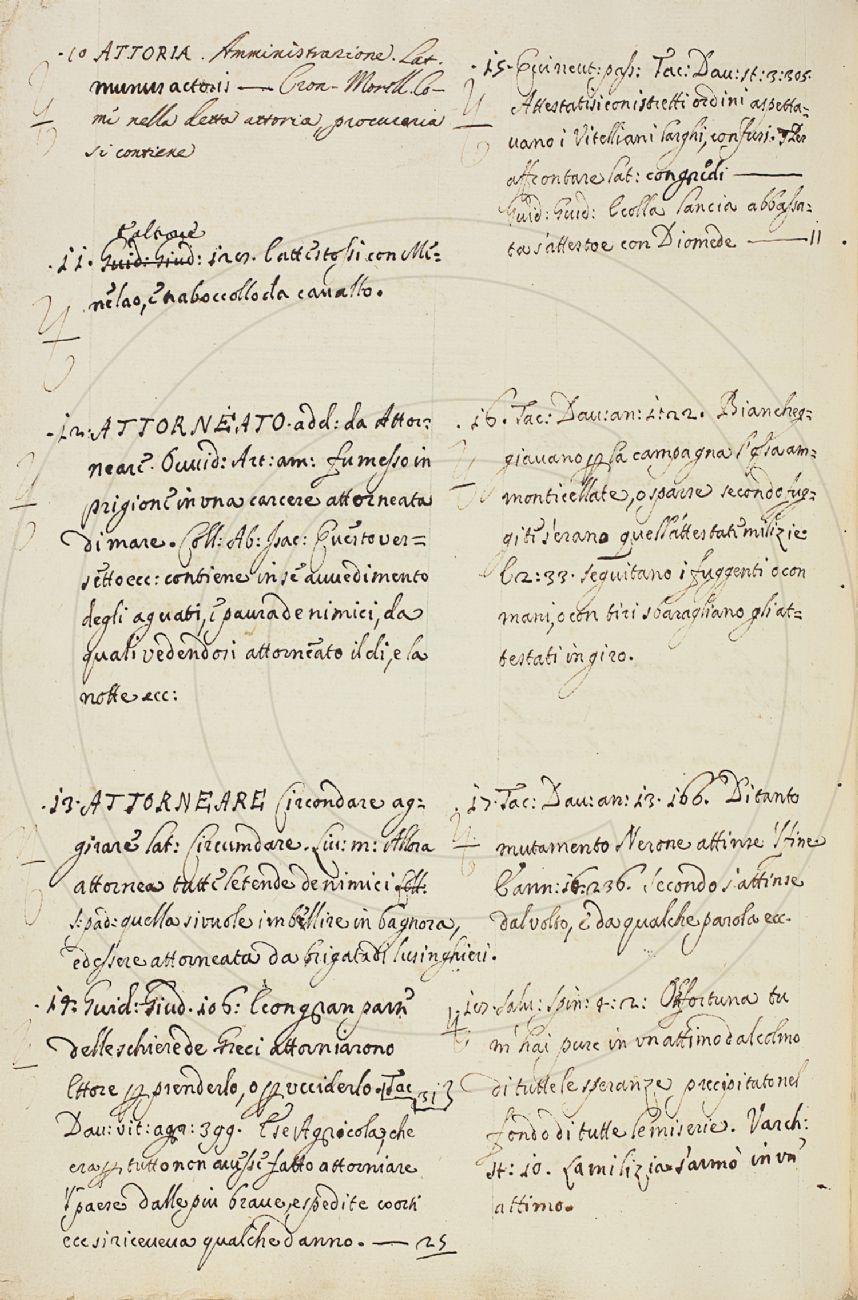 ·10 ATTORIA. Amministrazione. Lat.
munus actoris — Cron. Morell. Co-
me nella detta attoria, procureria
si contiene
·11· Guid: Giud: l'attestossi con Me-
nelao, e traboccollo da cavallo.
·12· ATTORNEATO. add: da Attor-
neare. Ovvid: Art: am: fu messo in
prigione in una carcere attorneata
di mare. Coll: Ab: Isac: Questo ver=
setto ecc: contiene in sè avvedimento
degli aguati, e paura de nimici, da
quali vedendosi attorneato il di, e la
notte ecc:
·13· ATTORNEARE Circondare ag-
girare lat: Circumdare. Liv: m: Allora
attornea tutte le tende de nimici
s: pad: quella si vuole imbellire in bagnora,
ed essere attorneata da brigata di lusinghieri.
·14· Guid: Giud. 106: E con gran parte
delle schiere de Greci attorniarono
Ettore p prenderlo, o p ucciderlo. Tac 31
Dav: vit: agr: 399. E se Agricola, che
era p tutto non avesse fatto attorniare
'l paese dalle piu brave, espedite coorti
ecc si riceveva qualche danno. — 25
·15· E vi neut: pass: Tac: Dav: st: 3: 305.
Attestatisi con istretti ordini aspetta-
vano i Vitelliani larghi, confusi. Per
affrontare lat: congredi —
Guid: Guid: E colla lancia abbassa-
ta s'attestoe con Diomede — 11
·16. Tac: Dav: an: 1: 22. Bianchegg-
giavano p la campagna l'ossa am-
monticellate, o sparse secondo fug-
giti s'erano quelle attestate milizie
E 2: 33. seguitano i fuggenti o con
mani, o con tiri sbaragliano gli at-
testati in giro.
·17· Tac: Dav: an: 13. 166. Di tanto
mutamento Nerone attinse 'l fine
E ann: 16: 236. Secondo s'attinse
dal volto, e da qualche parola ecc.
Salv: Spin: 4: 2: O fortuna tu
m'hai pure in un attimo dal colmo
di tutte le speranze precipitato nel
fondo di tutte le miserie. Varch:
st: 10. La milizia s'armò in un
attimo.